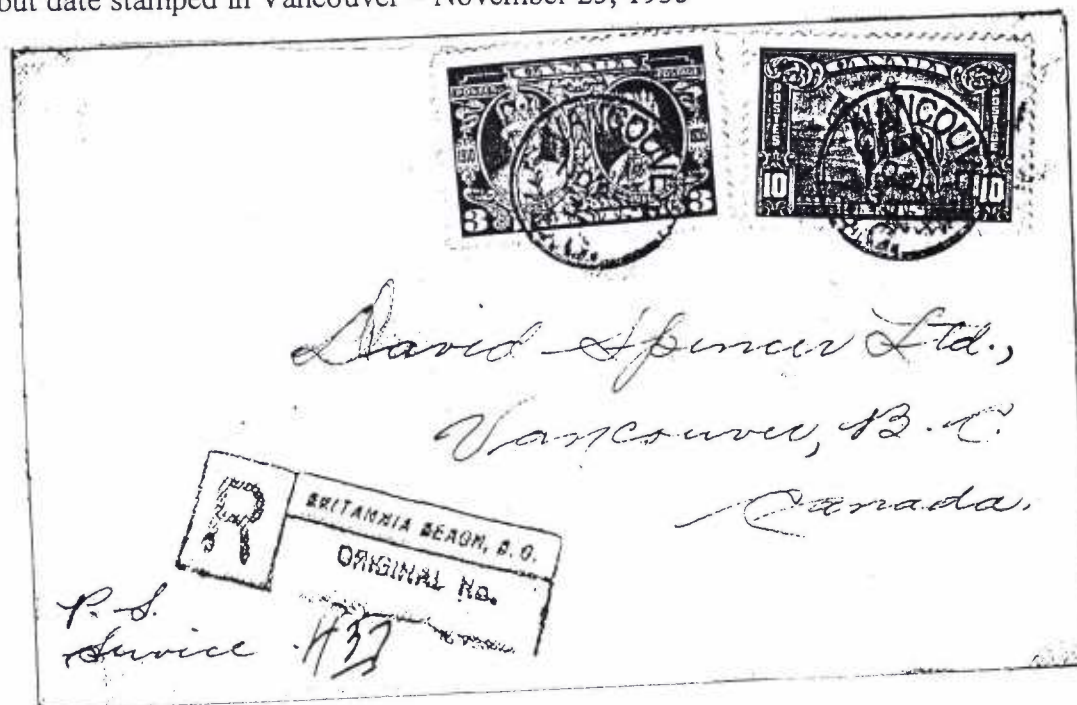 out date stamped in Vancouver – November 23, 1936
CANADA
POSTES
POSTAGE
3 CENTS 3
VANCOUVER
CANADA
POSTES
POSTAGE
10 10
VANCOUVER
David Spencer Ltd.,
Vancouver, B.C.
Canada.
R
BRITANNIA BEACH, B.C.
ORIGINAL No.
437
P. S.
Service